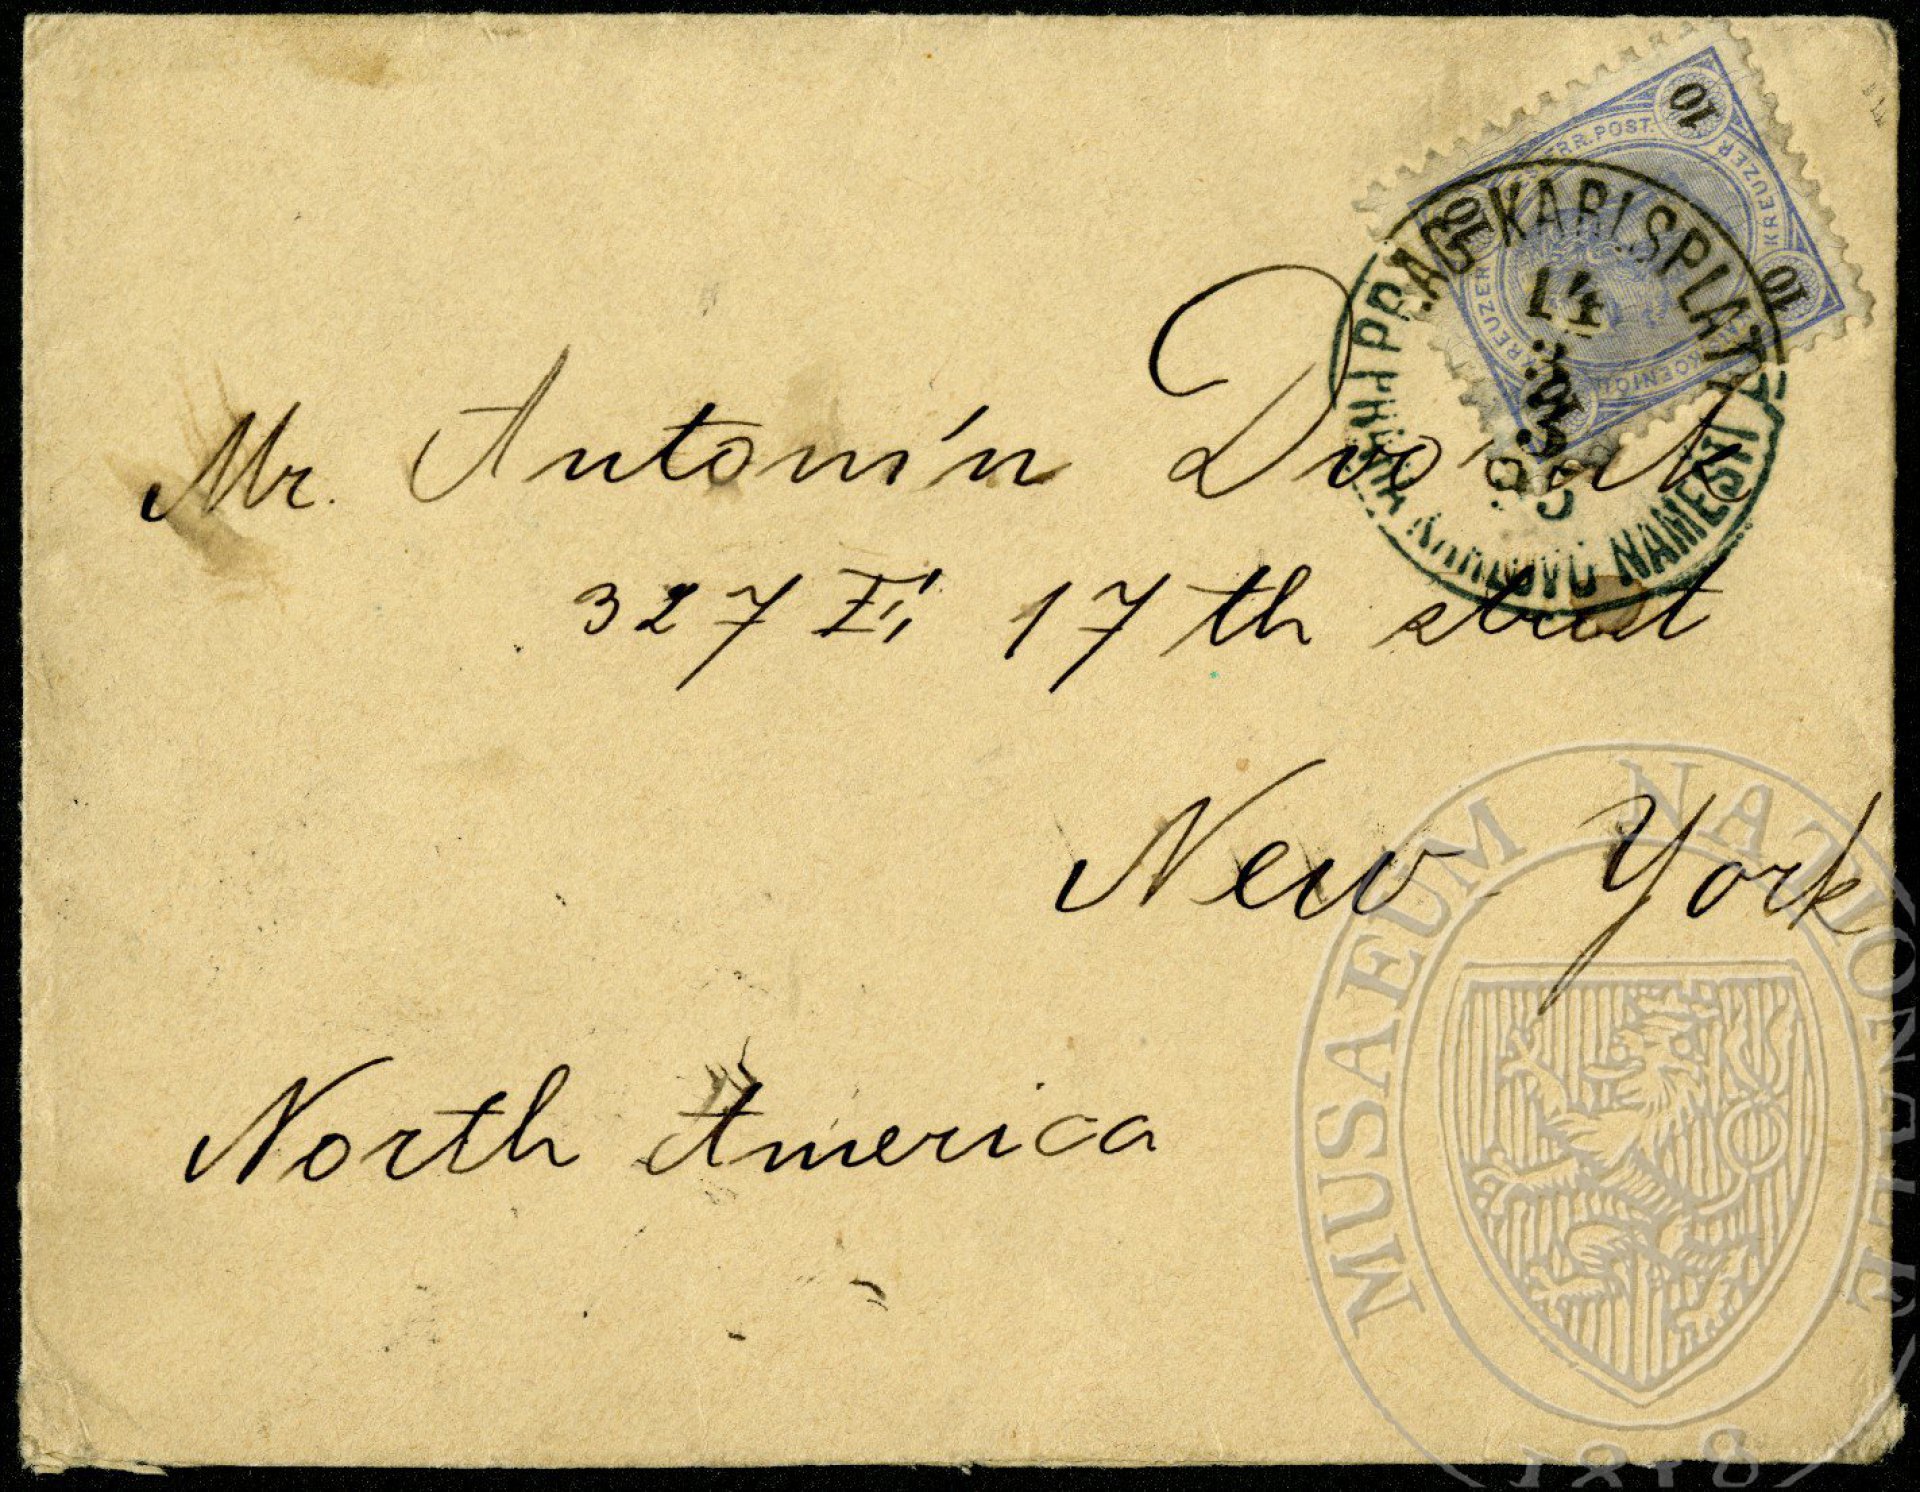 10
ERR. POST.
KREUZER
10
10
KREUZER
PRAG KARLSPLATZ
14
3
93
KARLOVO NÁMĚSTÍ
Mr. Antonín Dvořák
327 E. 17th street
New York
North America
MUSAEUM NATIONALE
1818